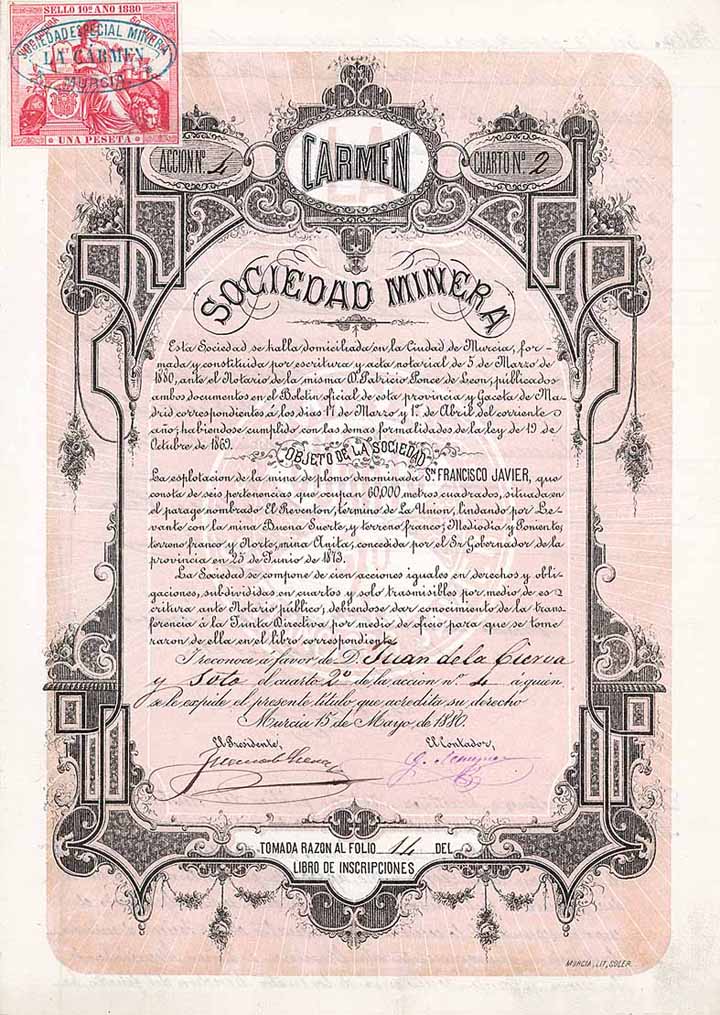 SELLO 10º AÑO 1880
SOCIEDAD ESPECIAL MINERA
LA CÁRMEN
MURCIA
UNA PESETA
ACCION Nº 4
CARMEN
CUARTO Nº 2
SOCIEDAD MINERA
Esta Sociedad se halla domiciliada en la Ciudad de Murcia, for-
mada y constituida por escritura y acta notarial de 5 de Marzo de
1880, ante el Notario de la misma D. Patricio Ponce de Leon; publicados
ambos documentos en el Boletin oficial de esta provincia y Gaceta de Ma-
drid correspondientes á los dias 17 de Marzo y 1º de Abril del corriente
año; habiendose cumplido con las demas formalidades de la ley de 19 de
Octubre de 1869.
OBJETO DE LA SOCIEDAD
La esplotacion de la mina de plomo denominada Sn FRANCISCO JAVIER, que
consta de seis pertenencias que ocupan 60,000 metros cuadrados, situada en
el parage nombrado El Reventon, término de La Union, lindando por Le-
vante con la mina Buena Suerte, y terreno franco; Mediodia y Poniente,
terreno franco y Norte, mina Anita; concedida por el Sr Gobernador de la
provincia en 25 de Junio de 1873.
La Sociedad se compone de cien acciones iguales en derechos y obli-
gaciones, subdivididas en cuartos y solo trasmisibles por medio de es-
critura ante Notario público, debiendose dar conocimiento de la trans-
ferencia á la Junta Directiva por medio de oficio para que se tome
razon de ella en el libro correspondiente.
I reconoce á favor de D. Juan de la Cierva
y Soto el cuarto 2º de la acción nº 4 á quien
se le expide el presente título que acredita su derecho
Murcia 15 de Mayo de 1880.
El Presidente,
El Contador,
TOMADA RAZON AL FOLIO 14 DEL
LIBRO DE INSCRIPCIONES
MURCIA, LIT, SOLER.